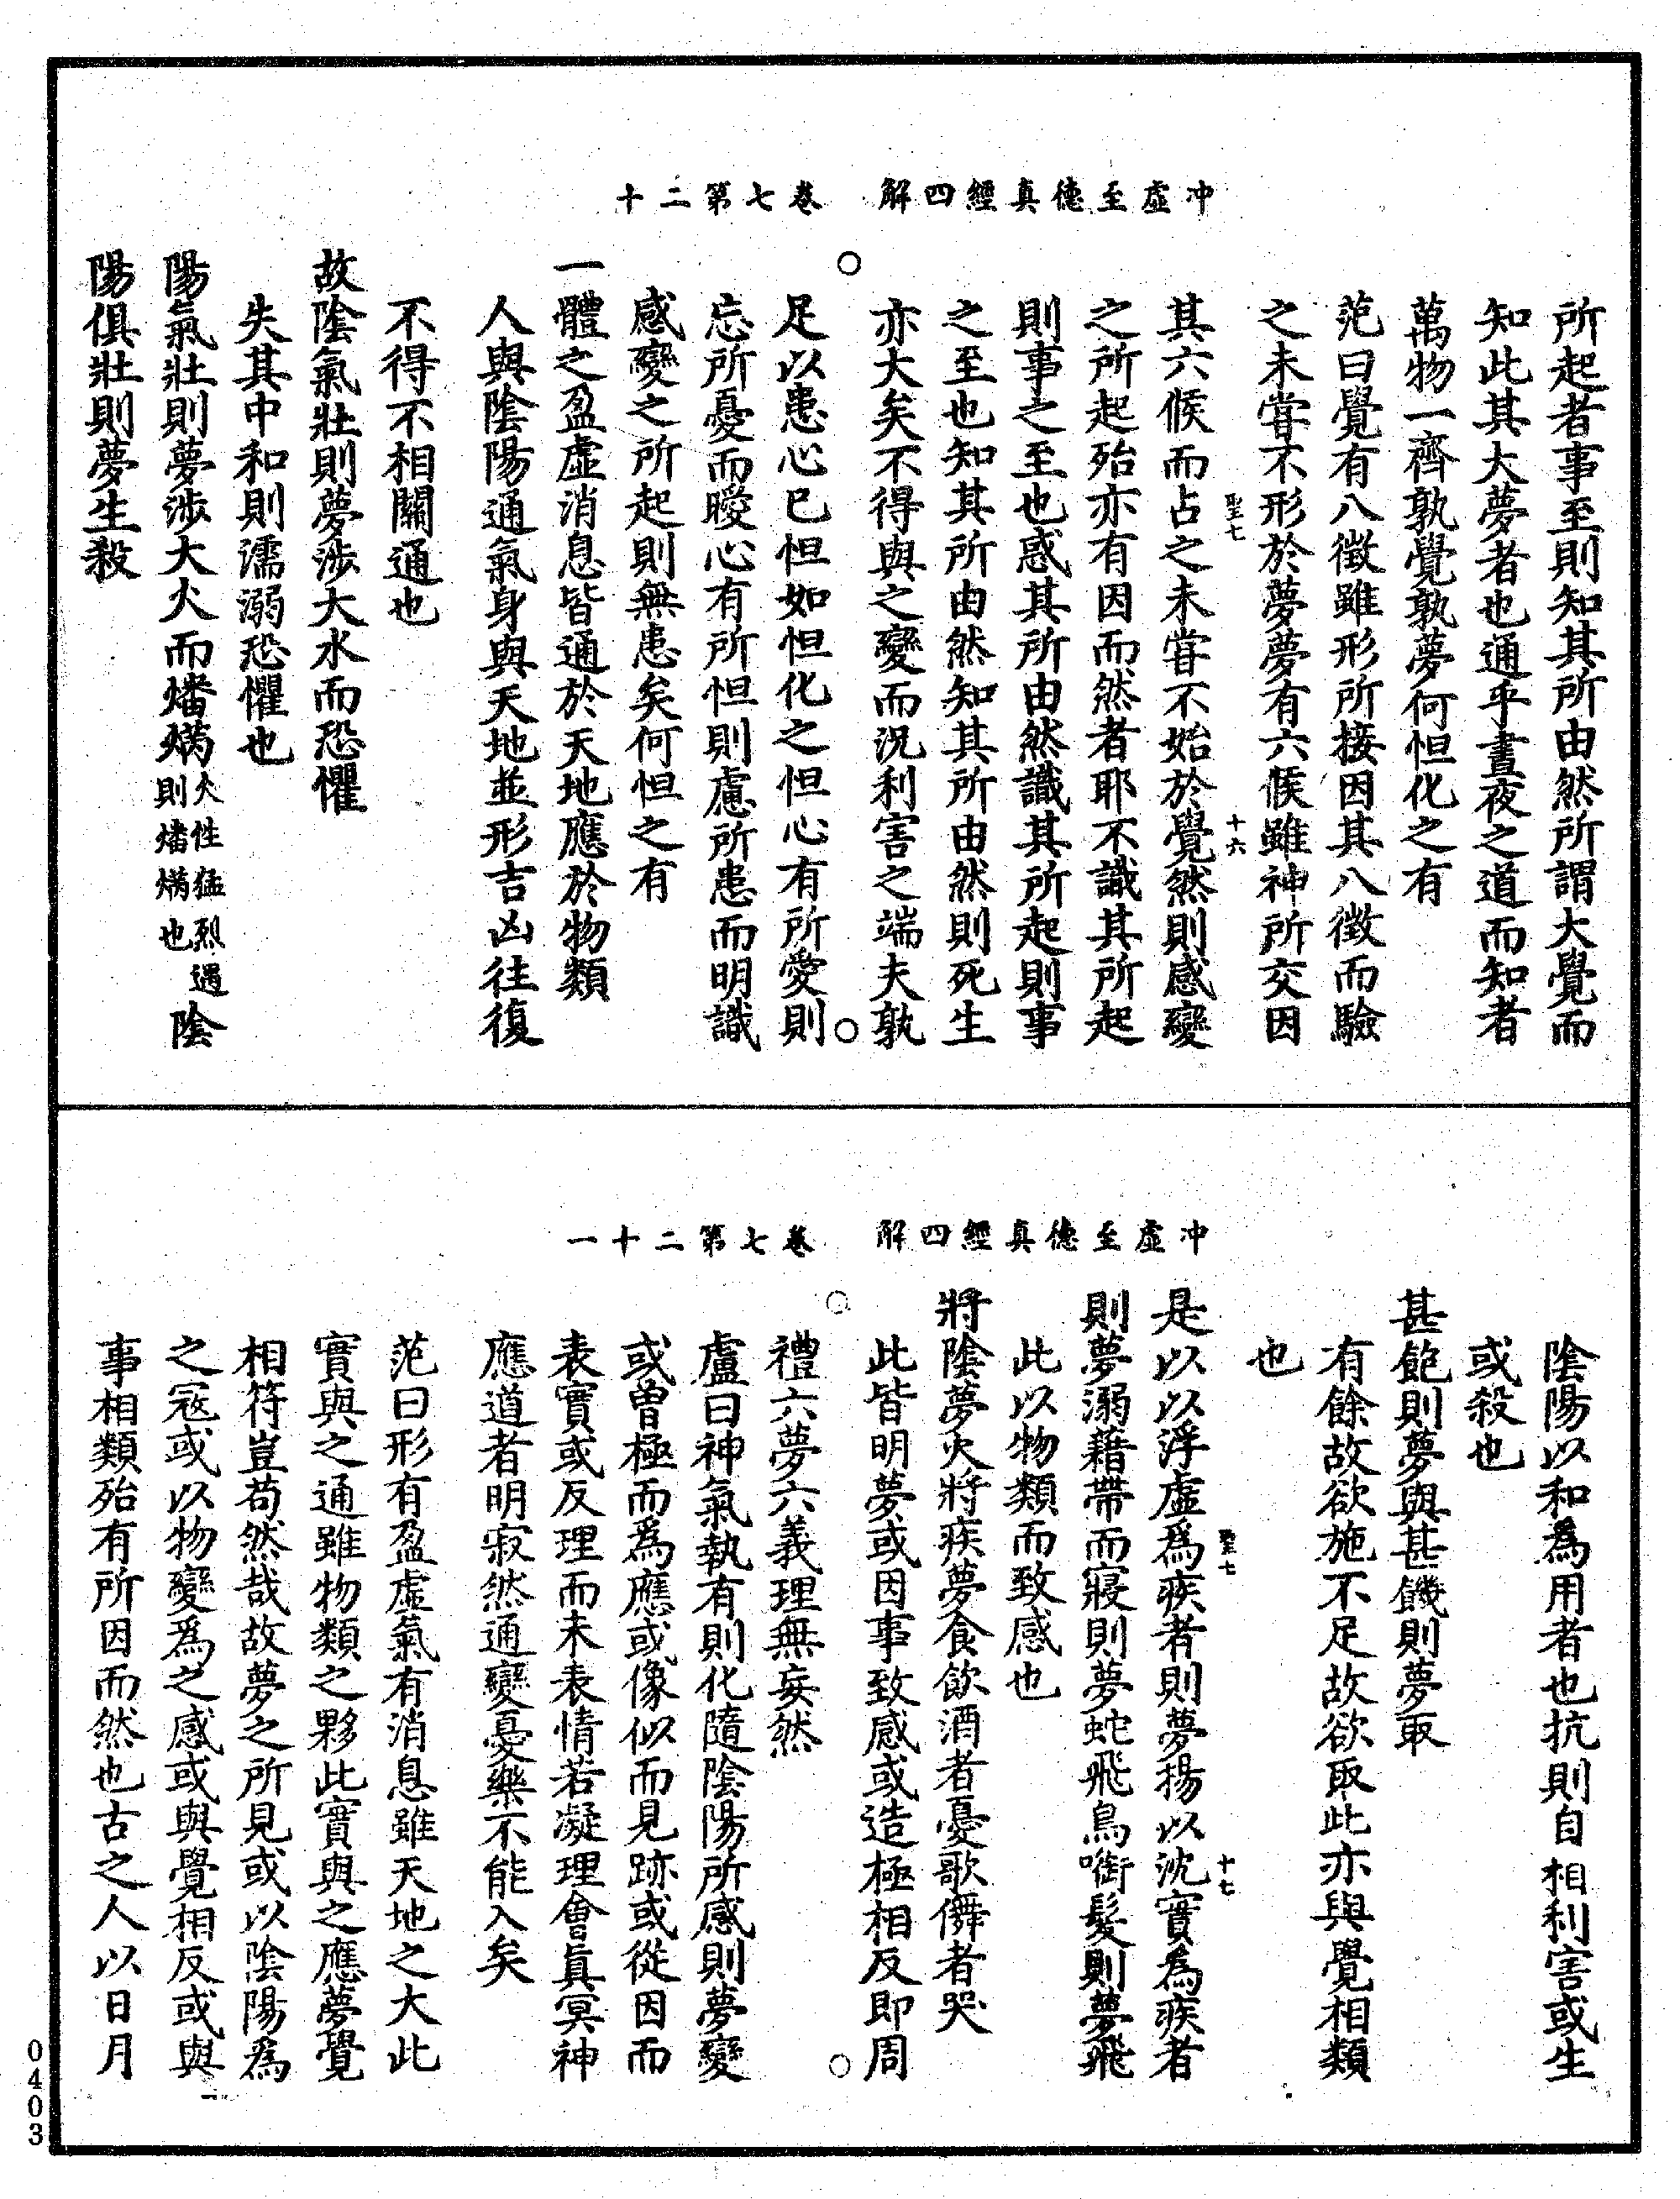 冲虛至德真經四解　卷七第二十
所起者事至則知其所由然所謂大覺而
知此其大夢者也通乎晝夜之道而知者
萬物一齊孰覺孰夢何怛化之有
范曰覺有八徵雖形所接因其八徵而驗
之未甞不形於夢夢有六候雖神所交因
聖七　十六
其六候而占之未甞不始於覺然則感變
之所起殆亦有因而然者耶不識其所起
則事之至也惑其所由然識其所起則事
之至也知其所由然知其所由然則死生
亦大矣不得與之變而況利害之端夫孰
足以患心已怛如怛化之怛心有所愛則
忘所憂而曖心有所怛則慮所患而明識
感變之所起則無患矣何怛之有
一體之盈虛消息皆通於天地應於物類
人與陰陽通氣身與天地並形吉凶往復
不得不相關通也
故陰氣壯則夢涉大水而恐懼
失其中和則濡溺恐懼也
陽氣壯則夢涉大火而燔焫火性猛烈遇則燔焫也陰
陽俱壯則夢生殺
冲虛至德真經四解　卷七第二十一
陰陽以和為用者也抗則自相利害或生
或殺也
甚飽則夢與甚饑則夢取
有餘故欲施不足故欲取此亦與覺相類
也
聖七　十七
是以以浮虛為疾者則夢揚以沈實為疾者
則夢溺藉帶而寢則夢蛇飛鳥銜髮則夢飛
此以物類而致感也
將陰夢火將疾夢食飲酒者憂歌儛者哭
此皆明夢或因事致感或造極相反即周
禮六夢六義理無妄然
盧曰神氣執有則化隨陰陽所感則夢變
或曾極而為應或像似而見跡或從因而
表實或反理而未表情若凝理會真冥神
應道者明寂然通變憂樂不能入矣
范曰形有盈虛氣有消息雖天地之大此
實與之通雖物類之夥此實與之應夢覺
相符豈苟然哉故夢之所見或以陰陽為
之寇或以物變為之感或與覺相反或與
事相類殆有所因而然也古之人以日月
0403